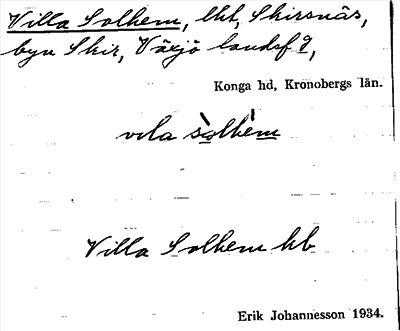 Villa Solhem, lht, Skirsnäs,
byn Skir, Växjö landsfg,
Konga hd, Kronobergs län.
vila sòlhém
Villa Solhem hb
Erik Johannesson 1934.